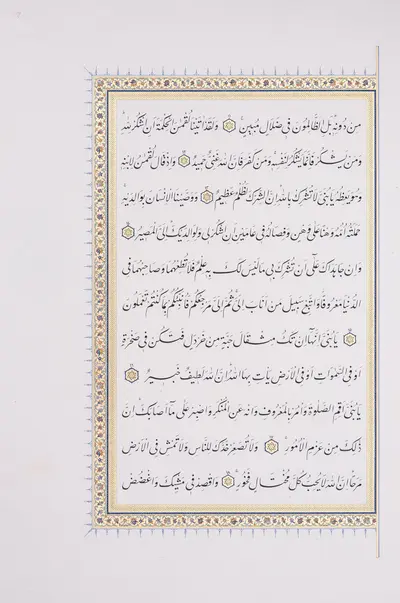 مِنْ دُونِهٖ بَلِ الظَّالِمُونَ فِى ضَلَالٍ مُبِينٍ وَلَقَدْ اٰتَيْنَا لُقْمٰنَ الْحِكْمَةَ اَنِ اشْكُرْ لِلّٰهِ
وَمَنْ يَشْكُرْ فَاِنَّمَا يَشْكُرُ لِنَفْسِهٖ وَمَنْ كَفَرَ فَاِنَّ اللّٰهَ غَنِىٌّ حَمِيدٌ وَاِذْ قَالَ لُقْمٰنُ لِابْنِهٖ
وَهُوَ يَعِظُهُ يَا بُنَىَّ لَا تُشْرِكْ بِاللّٰهِ اِنَّ الشِّرْكَ لَظُلْمٌ عَظِيمٌ وَوَصَّيْنَا الْاِنْسَانَ بِوَالِدَيْهِ
حَمَلَتْهُ اُمُّهُ وَهْنًا عَلٰى وَهْنٍ وَفِصَالُهُ فِى عَامَيْنِ اَنِ اشْكُرْ لِى وَلِوَالِدَيْكَ اِلَىَّ الْمَصِيرُ
وَاِنْ جَاهَدَاكَ عَلٰى اَنْ تُشْرِكَ بِى مَا لَيْسَ لَكَ بِهٖ عِلْمٌ فَلَا تُطِعْهُمَا وَصَاحِبْهُمَا فِى
الدُّنْيَا مَعْرُوفًا وَاتَّبِعْ سَبِيلَ مَنْ اَنَابَ اِلَىَّ ثُمَّ اِلَىَّ مَرْجِعُكُمْ فَاُنَبِّئُكُمْ بِمَا كُنْتُمْ تَعْمَلُونَ
يَا بُنَىَّ اِنَّهَا اِنْ تَكُ مِثْقَالَ حَبَّةٍ مِنْ خَرْدَلٍ فَتَكُنْ فِى صَخْرَةٍ
اَوْ فِى السَّمٰوَاتِ اَوْ فِى الْاَرْضِ يَاْتِ بِهَا اللّٰهُ اِنَّ اللّٰهَ لَطِيفٌ خَبِيرٌ
يَا بُنَىَّ اَقِمِ الصَّلٰوةَ وَاْمُرْ بِالْمَعْرُوفِ وَانْهَ عَنِ الْمُنْكَرِ وَاصْبِرْ عَلٰى مَا اَصَابَكَ اِنَّ
ذٰلِكَ مِنْ عَزْمِ الْاُمُورِ وَلَا تُصَعِّرْ خَدَّكَ لِلنَّاسِ وَلَا تَمْشِ فِى الْاَرْضِ
مَرَحًا اِنَّ اللّٰهَ لَا يُحِبُّ كُلَّ مُخْتَالٍ فَخُورٍ وَاقْصِدْ فِى مَشْيِكَ وَاغْضُضْ